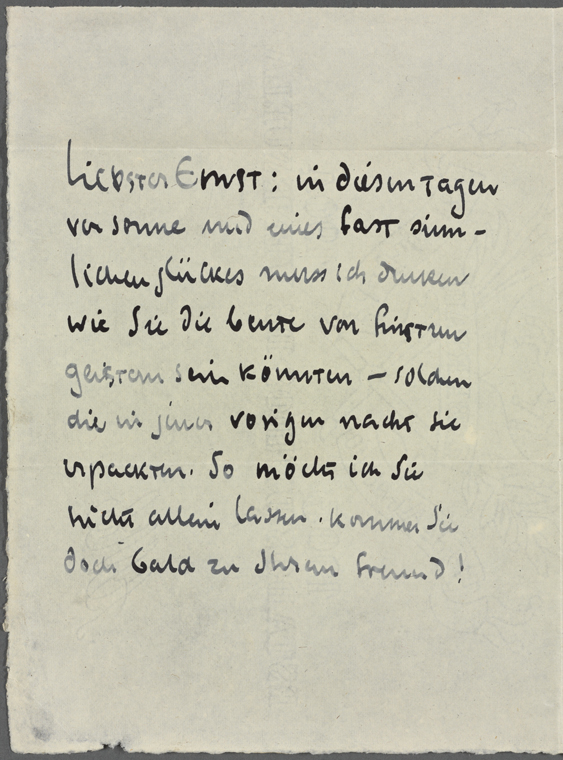 liebster Ernst: in diesen tagen
von sonne und eines fast sinn-
lichen glückes muss ich denken
wie Sie die beute von finstren
geistern sein könnten – solchen
die in jener vorigen nacht sie
erpackten. So möcht ich Sie
nicht allein lassen. kommen Sie
doch bald zu Ihrem freund!